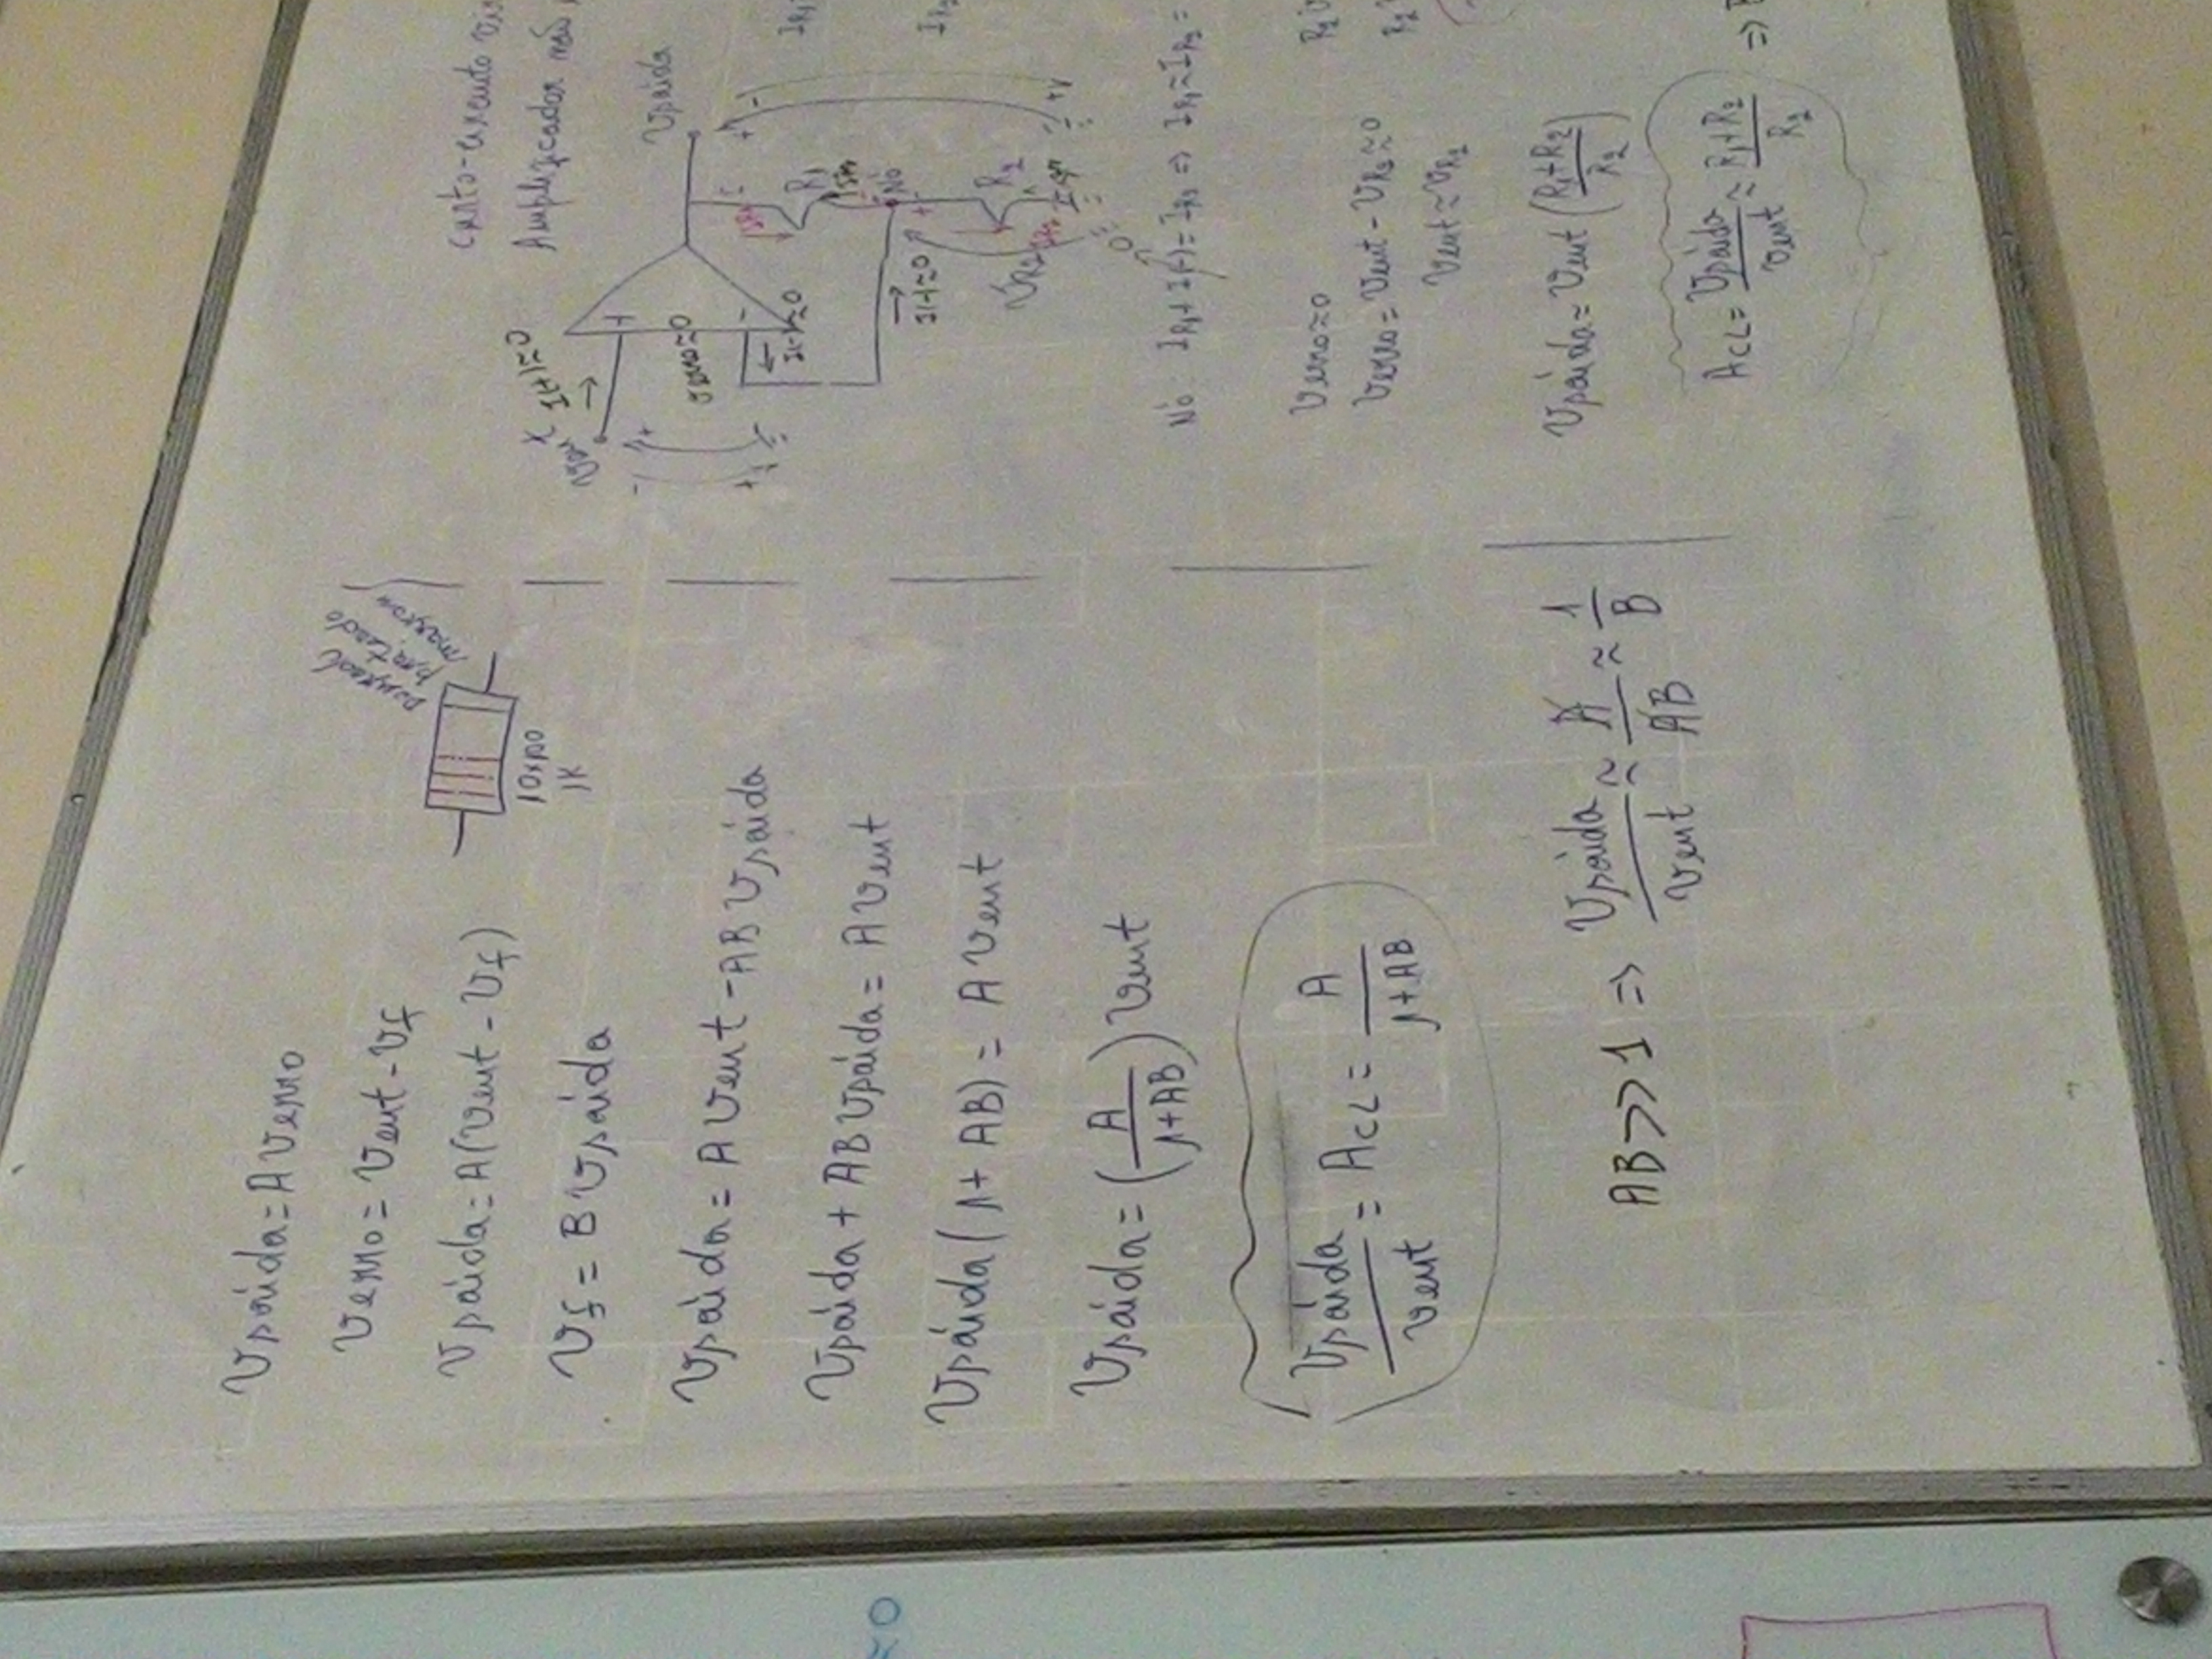 Vsaída = A Verro
Verro = Vent - Vf
Vsaída = A(Vent - Vf)
Vf = B Vsaída
Vsaída = A Vent - AB Vsaída
Vsaída + AB Vsaída = A Vent
Vsaída (1 + AB) = A Vent
Vsaída = (A / 1+AB) Vent
Vsaída / Vent = ACL = A / 1+AB
AB >> 1 => Vsaída / Vent ≈ A / AB ≈ 1 / B
dourado
prateado
marrom
10x100
1K
≈0
curto-circuito
Amplificador não
Vent I(+)≈0
+
Verro≈0
Vsaída
-
I(-)≈0
R1
Nó
I(-)≈0
VR2
IR2
R2
Nó: IR1 + I(-) = IR2 => IR1 ≈ IR2 =
Verro≈0
Verro = Vent - VR2 ≈ 0
Vent ≈ VR2
Vsaída ≈ Vent (R1+R2 / R2)
ACL = Vsaída / Vent ≈ R1+R2 / R2 =>